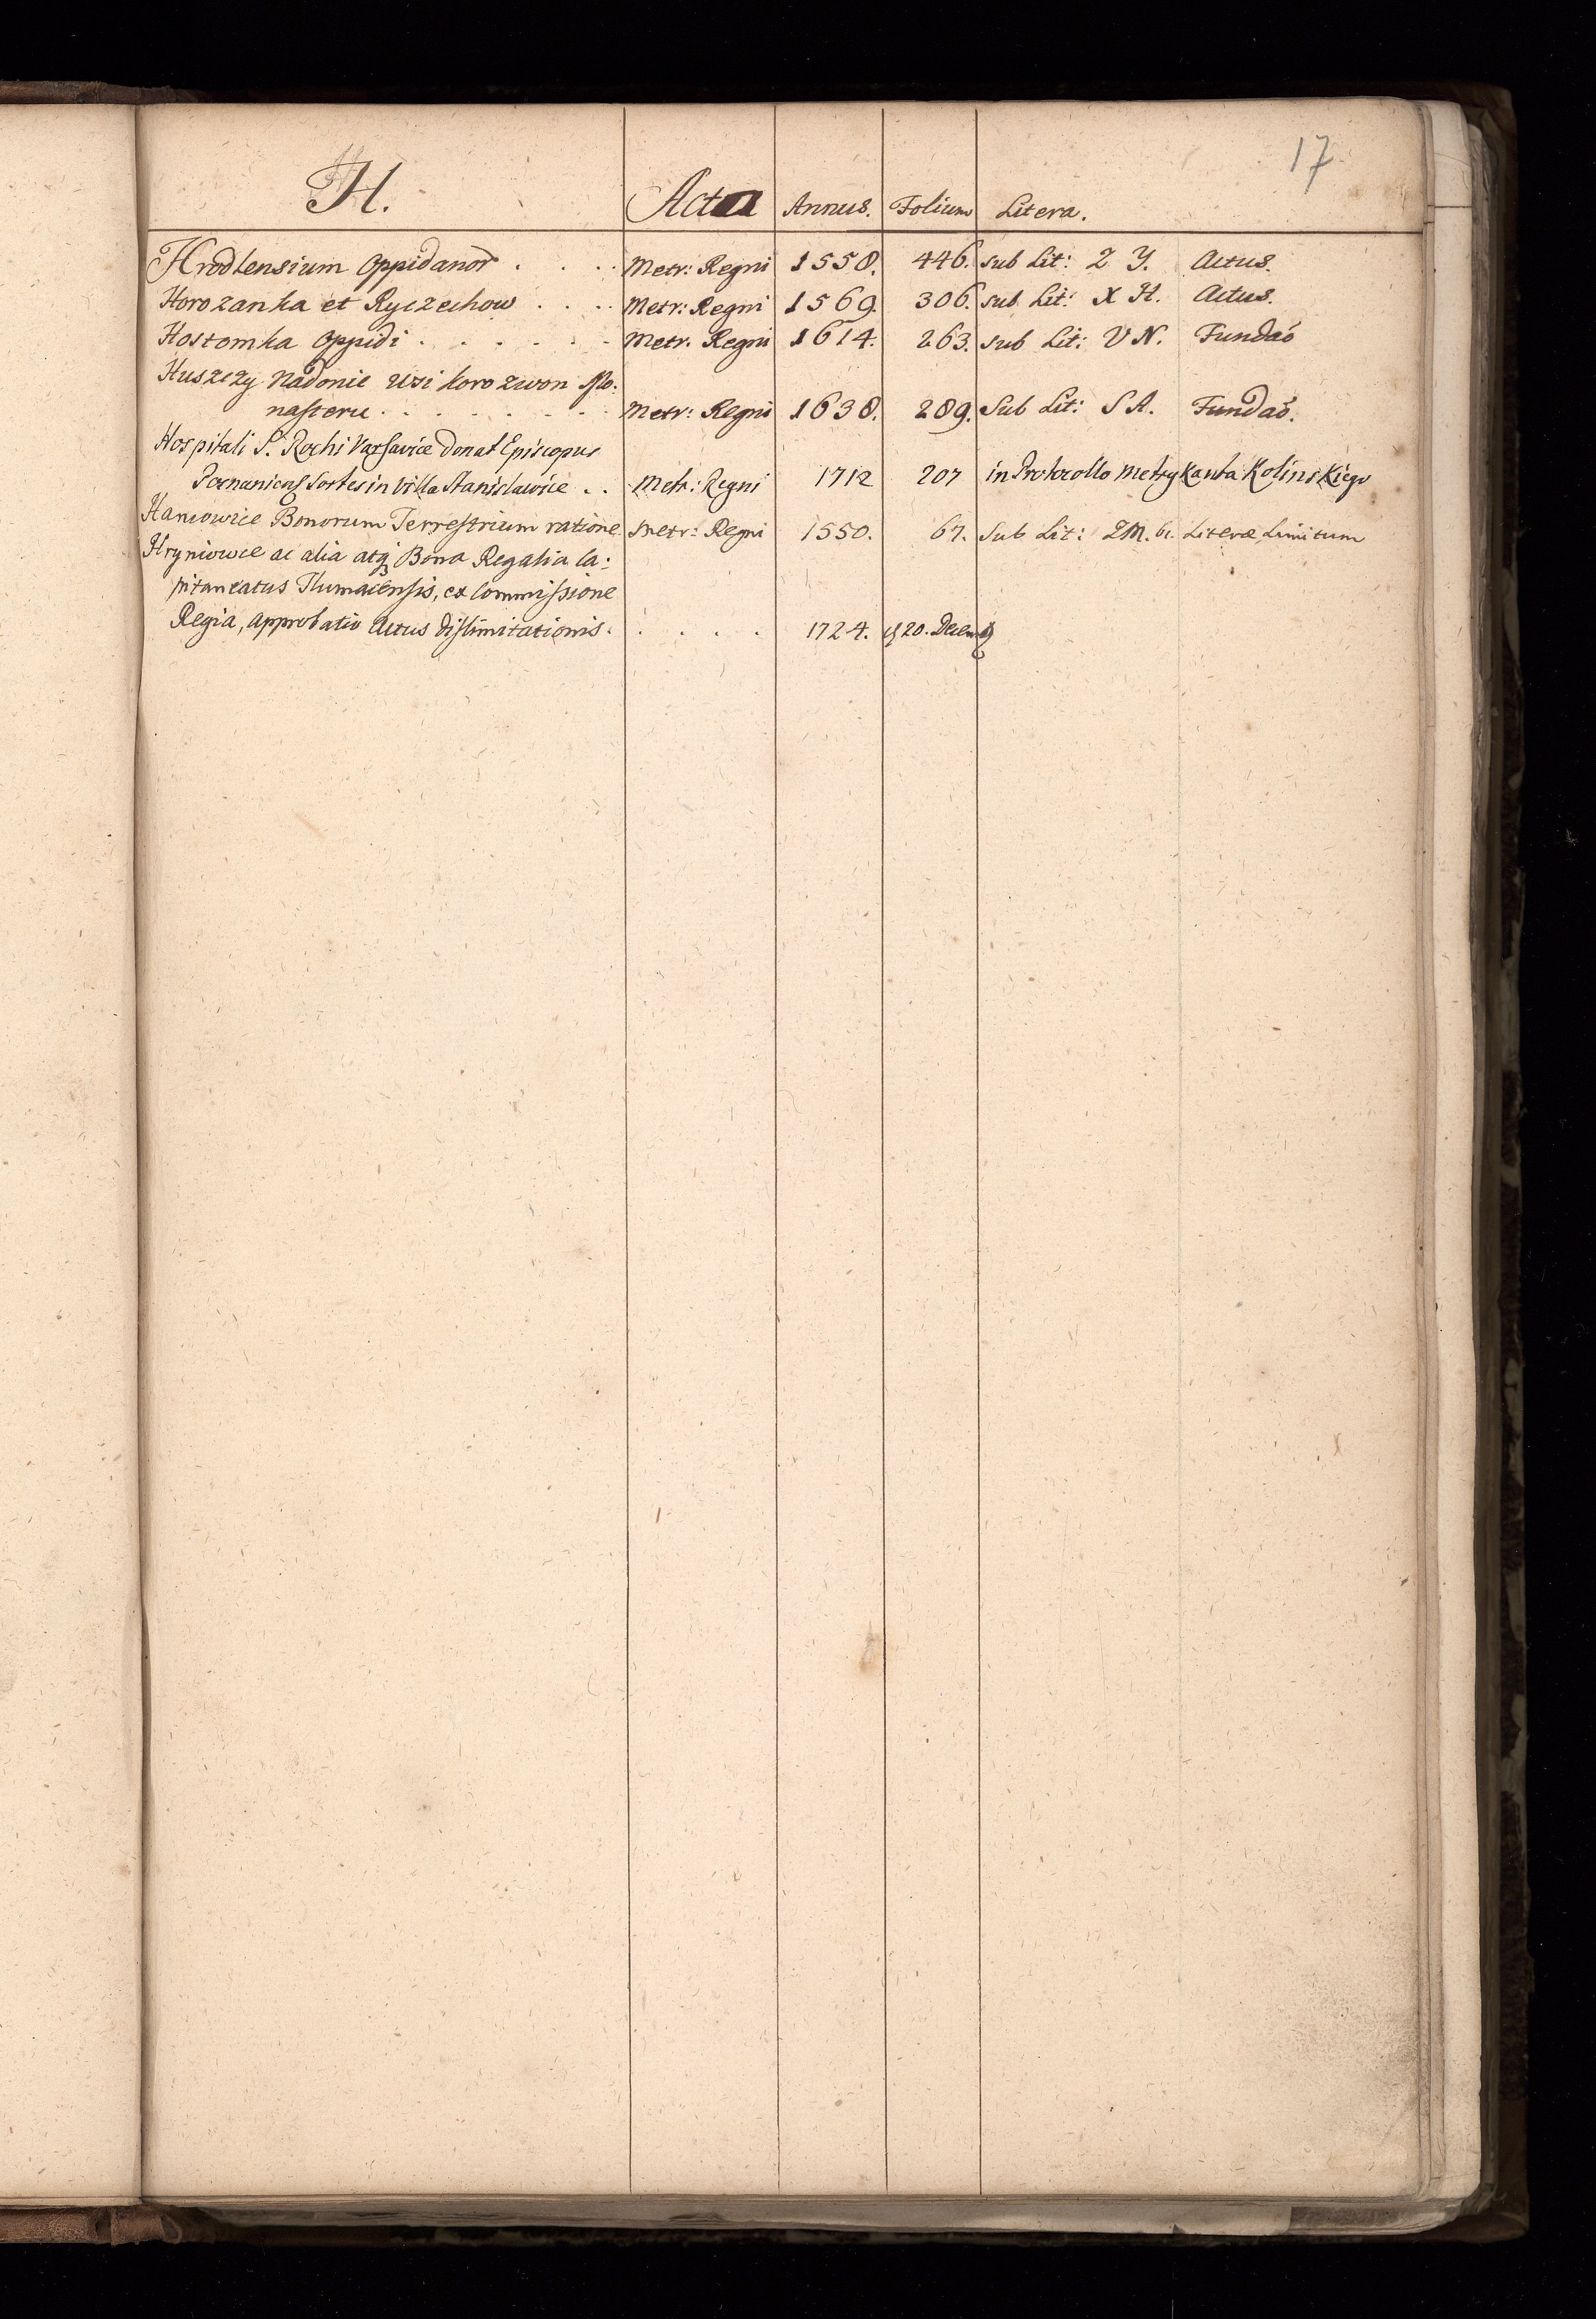 17
H. Acta Annus. Folium Litera.
Hrodlensium Oppidanor . . . . Metr: Regni 1558. 446. sub Lit: Z Y. Actus.
Horozanka et Ryczechow . . . . Metr: Regni 1569. 306. sub Lit: X H. Actus.
Hostomka Oppidi . . . . . . Metr. Regni 1614. 263. sub Lit: V N. Fundaó
Huszczy Nadonie Wsi Korozwon Mo:
nasteru . . . . . . . Metr: Regni 1638. 289. Sub Lit: S A. Fundaó.
Hospitali S. Rochi Varsavice donat Episcopus
Posnaniens Sortes in Villa Stanislawice . . Metr: Regni 1712 207 in Prothocollo Metrykanta Kolinskiego
Hancowice Bonorum Terrestrium ratione Metr: Regni 1550. 67. Sub Lit: ZM. Literæ Limitum
Hryniowce ac alia atq Bona Regalia Ca:
pitaneatus Tlumacensis, ex Commissione
Regia, Approbatio Actus Dislimitationis . . . . . 1724. 20. Decem